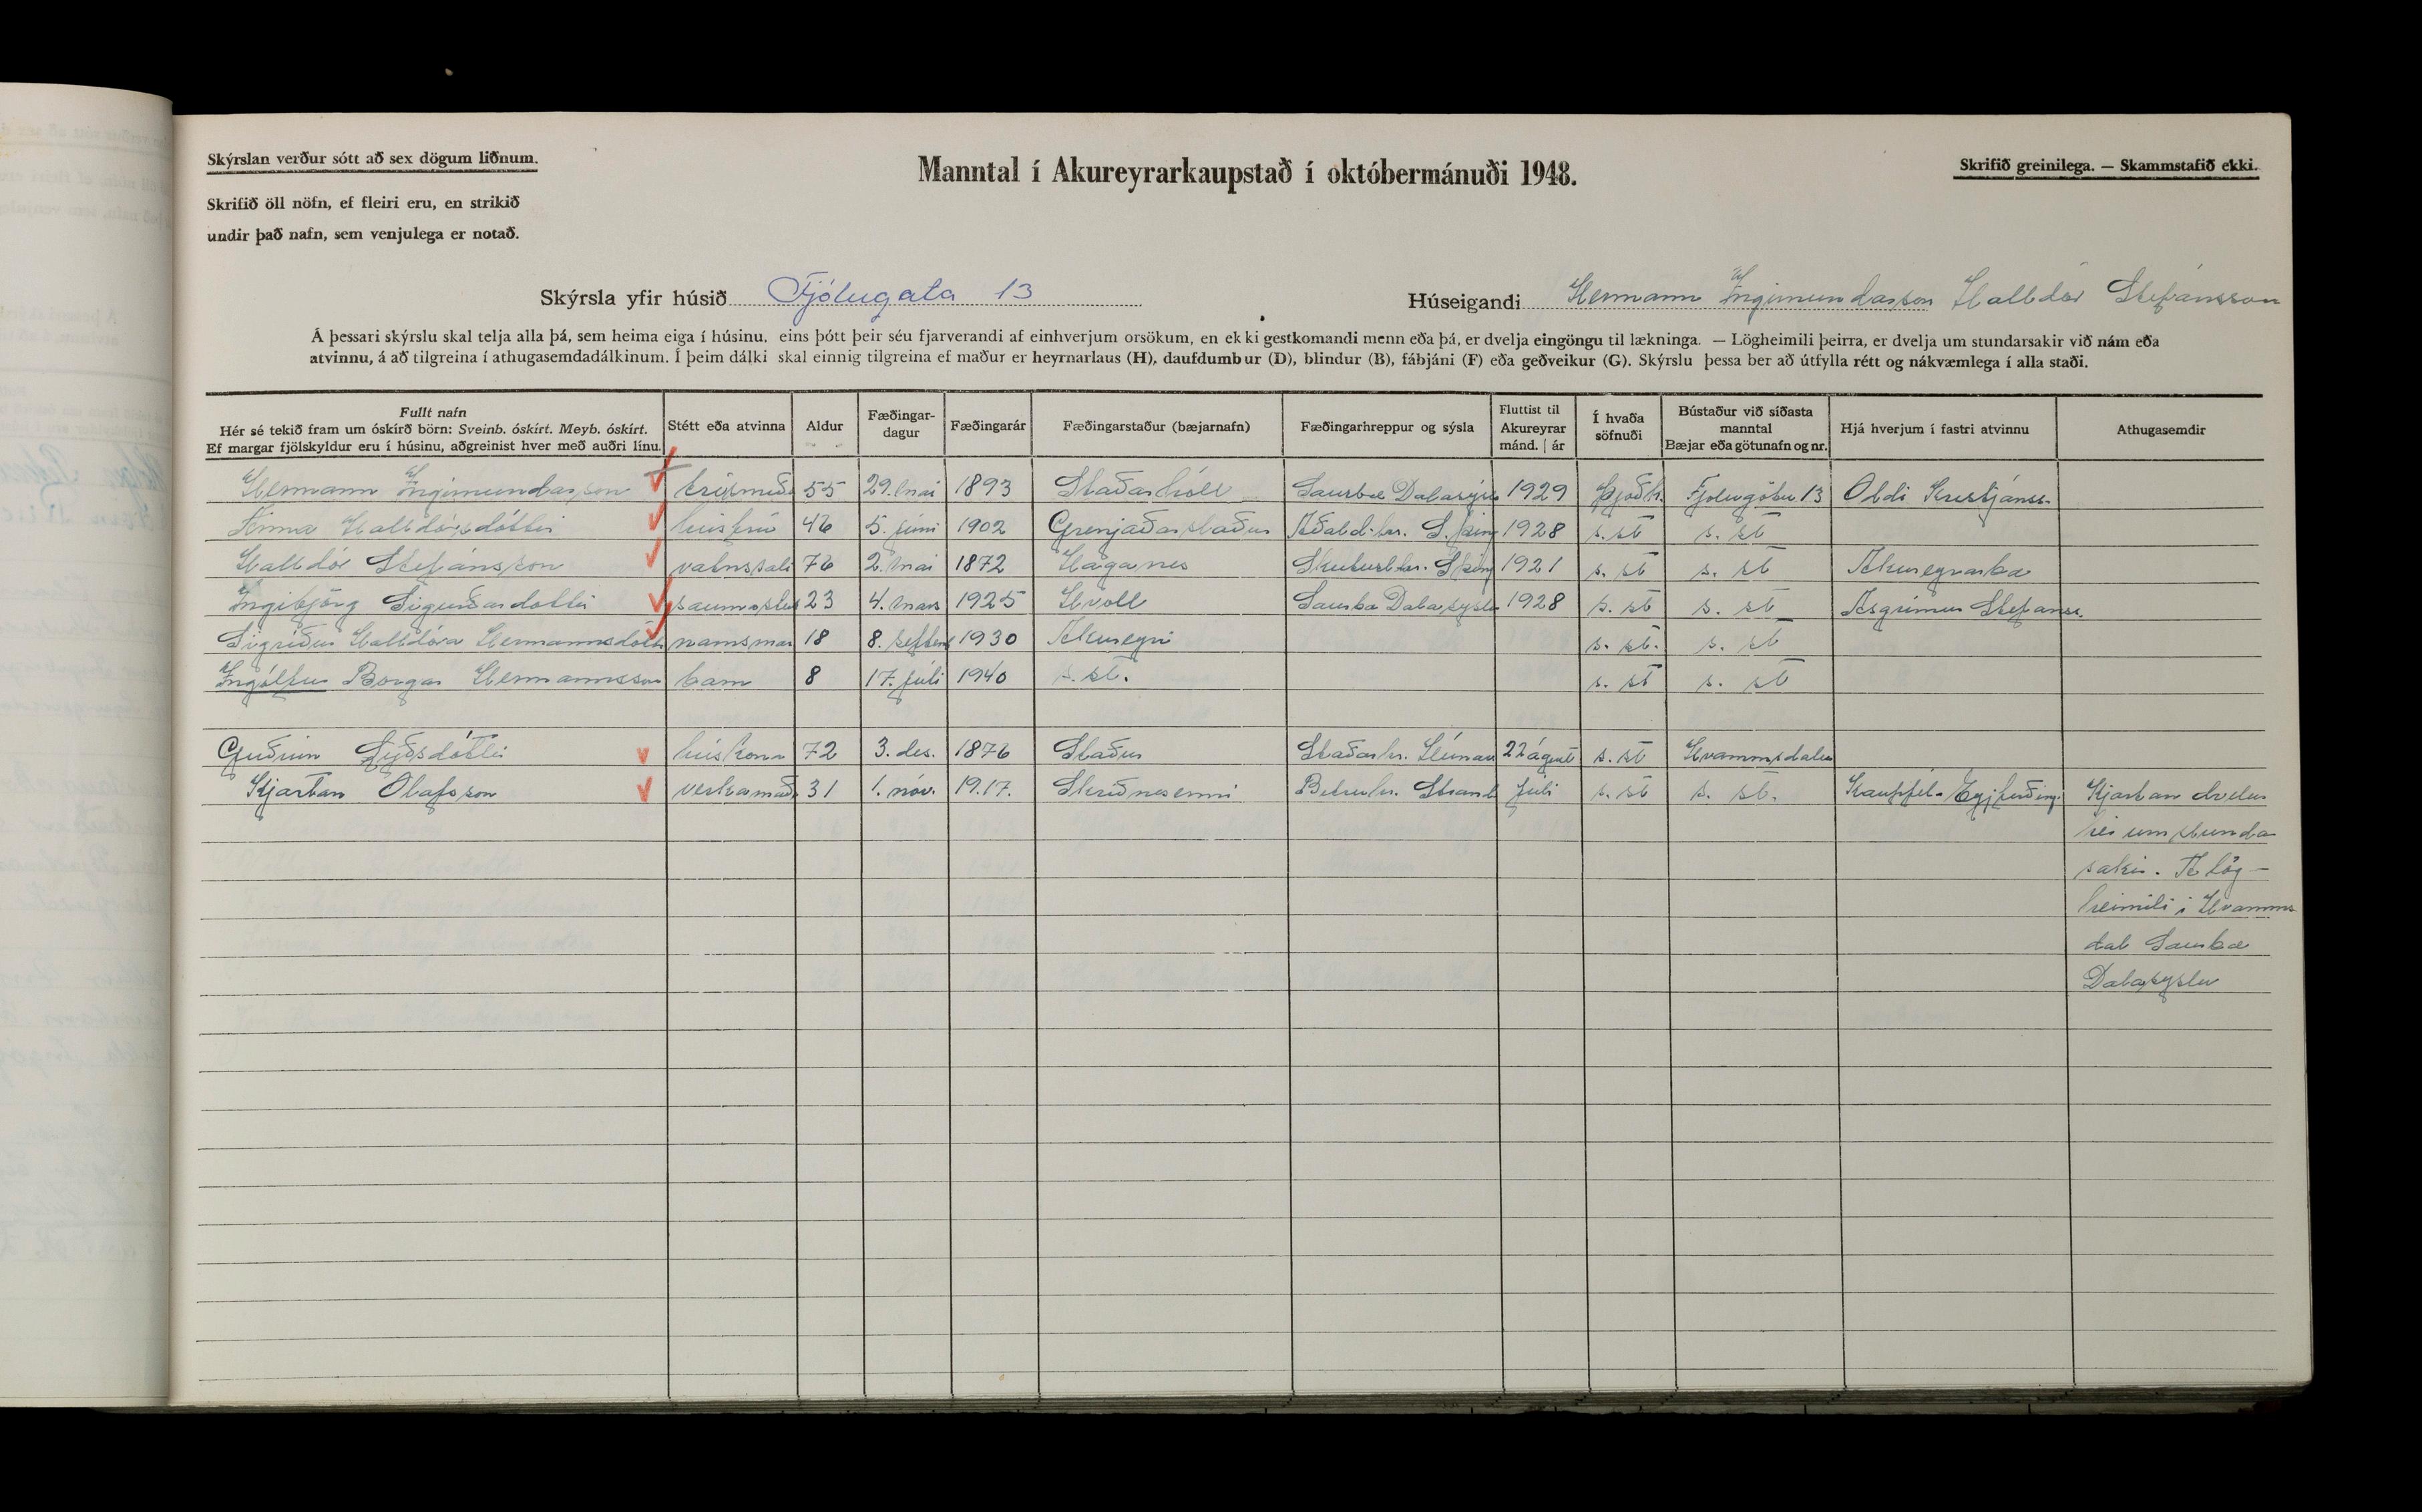 Skýrslan verður sótt að sex dögum liðnum.
Skrifið öll nöfn, ef fleiri eru, en strikið
undir það nafn, sem venjulega er notað.
Manntal í Akureyrarkaupstað í októbermánuði 1948.
Skrifið greinilega. — Skammstafið ekki.
Skýrsla yfir húsið Fjólugata 13
Húseigandi Hermann Ingimundarson Halldór Stefánsson
Á þessari skýrslu skal telja alla þá, sem heima eiga í húsinu, eins þótt þeir séu fjarverandi af einhverjum orsökum, en ekki gestkomandi menn eða þá, er dvelja eingöngu til lækninga. — Lögheimili þeirra, er dvelja um stundarsakir við nám eða
atvinnu, á að tilgreina í athugasemdadálkinum. Í þeim dálki skal einnig tilgreina ef maður er heyrnarlaus (H), daufdumbur (D), blindur (B), fábjáni (F) eða geðveikur (G). Skýrslu þessa ber að útfylla rétt og nákvæmlega í alla staði.
Fullt nafn
Hér sé tekið fram um óskírð börn: Sveinb. óskírt. Meyb. óskírt.
Ef margar fjölskyldur eru í húsinu, aðgreinist hver með auðri línu.
Stétt eða atvinna
Aldur
Fæðingar-
dagur
Fæðingarár
Fæðingarstaður (bæjarnafn)
Fæðingarhreppur og sýsla
Fluttist til
Akureyrar
mánd. | ár
Í hvaða
söfnuði
Bústaður við síðasta
manntal
Bæjar eða götunafn og nr.
Hjá hverjum í fastri atvinnu
Athugasemdir
Hermann Ingimundarson 55 29. maí 1893 Staðarhóll Saurbæ Dalasýslu 1929 Þjóðk. Fjólugötu 13 Oddi Kristjánss.
Anna Halldórsdóttir húsfrú 46 5. júní 1902 Grenjaðarstaður Aðald.hr. S. Þing 1928 s. st s. st
Halldór Stefánsson 76 2. maí 1872 Haganes Skútust.hr. S Þing 1921 s. st s. st Akureyrarbæ
Ingibjörg Sigurðardóttir 23 4. mars 1925 Hvoll Saurbæ Dalasýslu 1928 s. st s. st Ásgrímur Stefánss.
Sigríður Halldóra Hermannsdótt námsmær 18 8. septem 1930 Akureyri s. st. s. st
Ingólfur Borgar Hermannsson barn 8 17. júlí 1940 s. st. s. st s. st
Guðrún Lýðsdóttir húskona 72 3. des. 1876 Staður Staðarhr. Húnav 22 ágúst s. st Hvammsdalur
Kjartan Ólafsson verkamað 31 1. nóv. 1917. Skriðnesenni Bitruhr. Strand júlí s. st s. st. Kaupfél. Eyfirðing. Kjartan dvelur
hér um stunda
sakir. Á lög-
heimili í Hvamms
dal Saurbæ
Dalasýslu